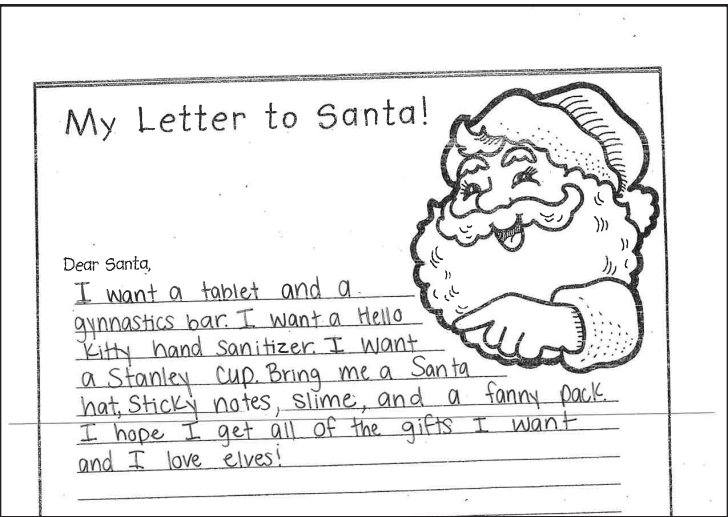 My Letter to Santa!
Dear Santa,
I want a tablet and a
gynnastics bar. I want a Hello
Kitty hand sanitizer. I want
a Stanley cup. Bring me a Santa
hat, Sticky notes, slime, and a fanny pack.
I hope I get all of the gifts I want
and I love elves!